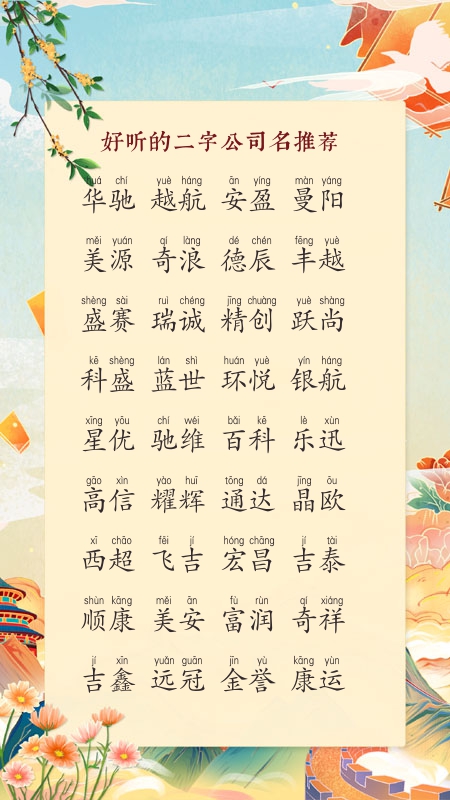 好听的二字公司名推荐
huá chí yuè háng ān yíng màn yáng
华驰 越航 安盈 曼阳
měi yuán qí làng dé chén fēng yuè
美源 奇浪 德辰 丰越
shèng sài ruì chéng jīng chuàng yuè shàng
盛赛 瑞诚 精创 跃尚
kē shèng lán shì huán yuè yín háng
科盛 蓝世 环悦 银航
xīng yōu chí wéi bǎi kē lè xùn
星优 驰维 百科 乐迅
gāo xìn yào huī tōng dá jīng ōu
高信 耀辉 通达 晶欧
xī chāo fēi jí hóng chāng jí tài
西超 飞吉 宏昌 吉泰
shùn kāng měi ān fù rùn qí xiáng
顺康 美安 富润 奇祥
jí xīn yuǎn guān jīn yù kāng yùn
吉鑫 远冠 金誉 康运